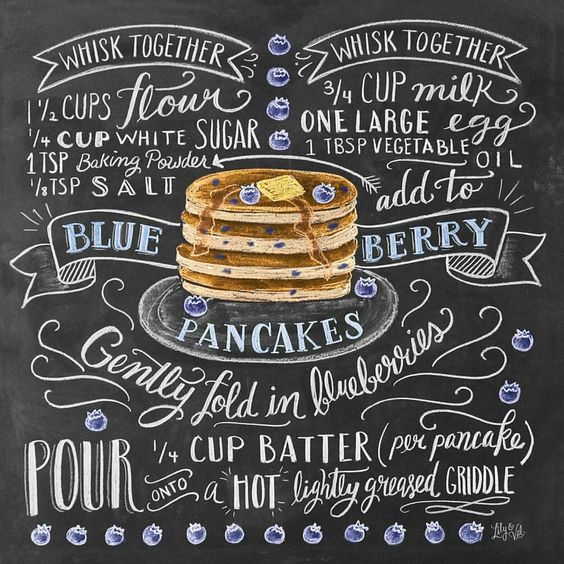 WHISK TOGETHER
1 1/2 CUPS flour
1/4 CUP WHITE SUGAR
1 TSP Baking Powder
1/8 TSP SALT
WHISK TOGETHER
3/4 CUP milk
ONE LARGE egg
1 TBSP VEGETABLE OIL
add to
BLUE BERRY
PANCAKES
Gently fold in blueberries
POUR 1/4 CUP BATTER (per pancake)
ONTO a HOT lightly greased GRIDDLE
Lily & Val